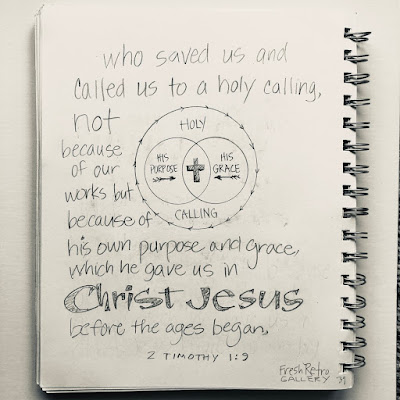 who saved us and
called us to a holy calling,
not
because
of our
works but
because of
HOLY
HIS
PURPOSE
HIS
GRACE
CALLING
his own purpose and grace,
which he gave us in
Christ Jesus
before the ages began,
2 TIMOTHY 1:9
Fresh Retro
GALLERY